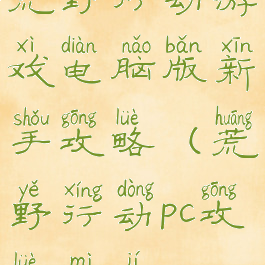 荒野行动游
xì diàn nǎo bǎn xīn
戏电脑版新
shǒu gōng lüè huāng
手攻略(荒
yě xíng dòng gōng
野行动PC攻
lüè mì jí